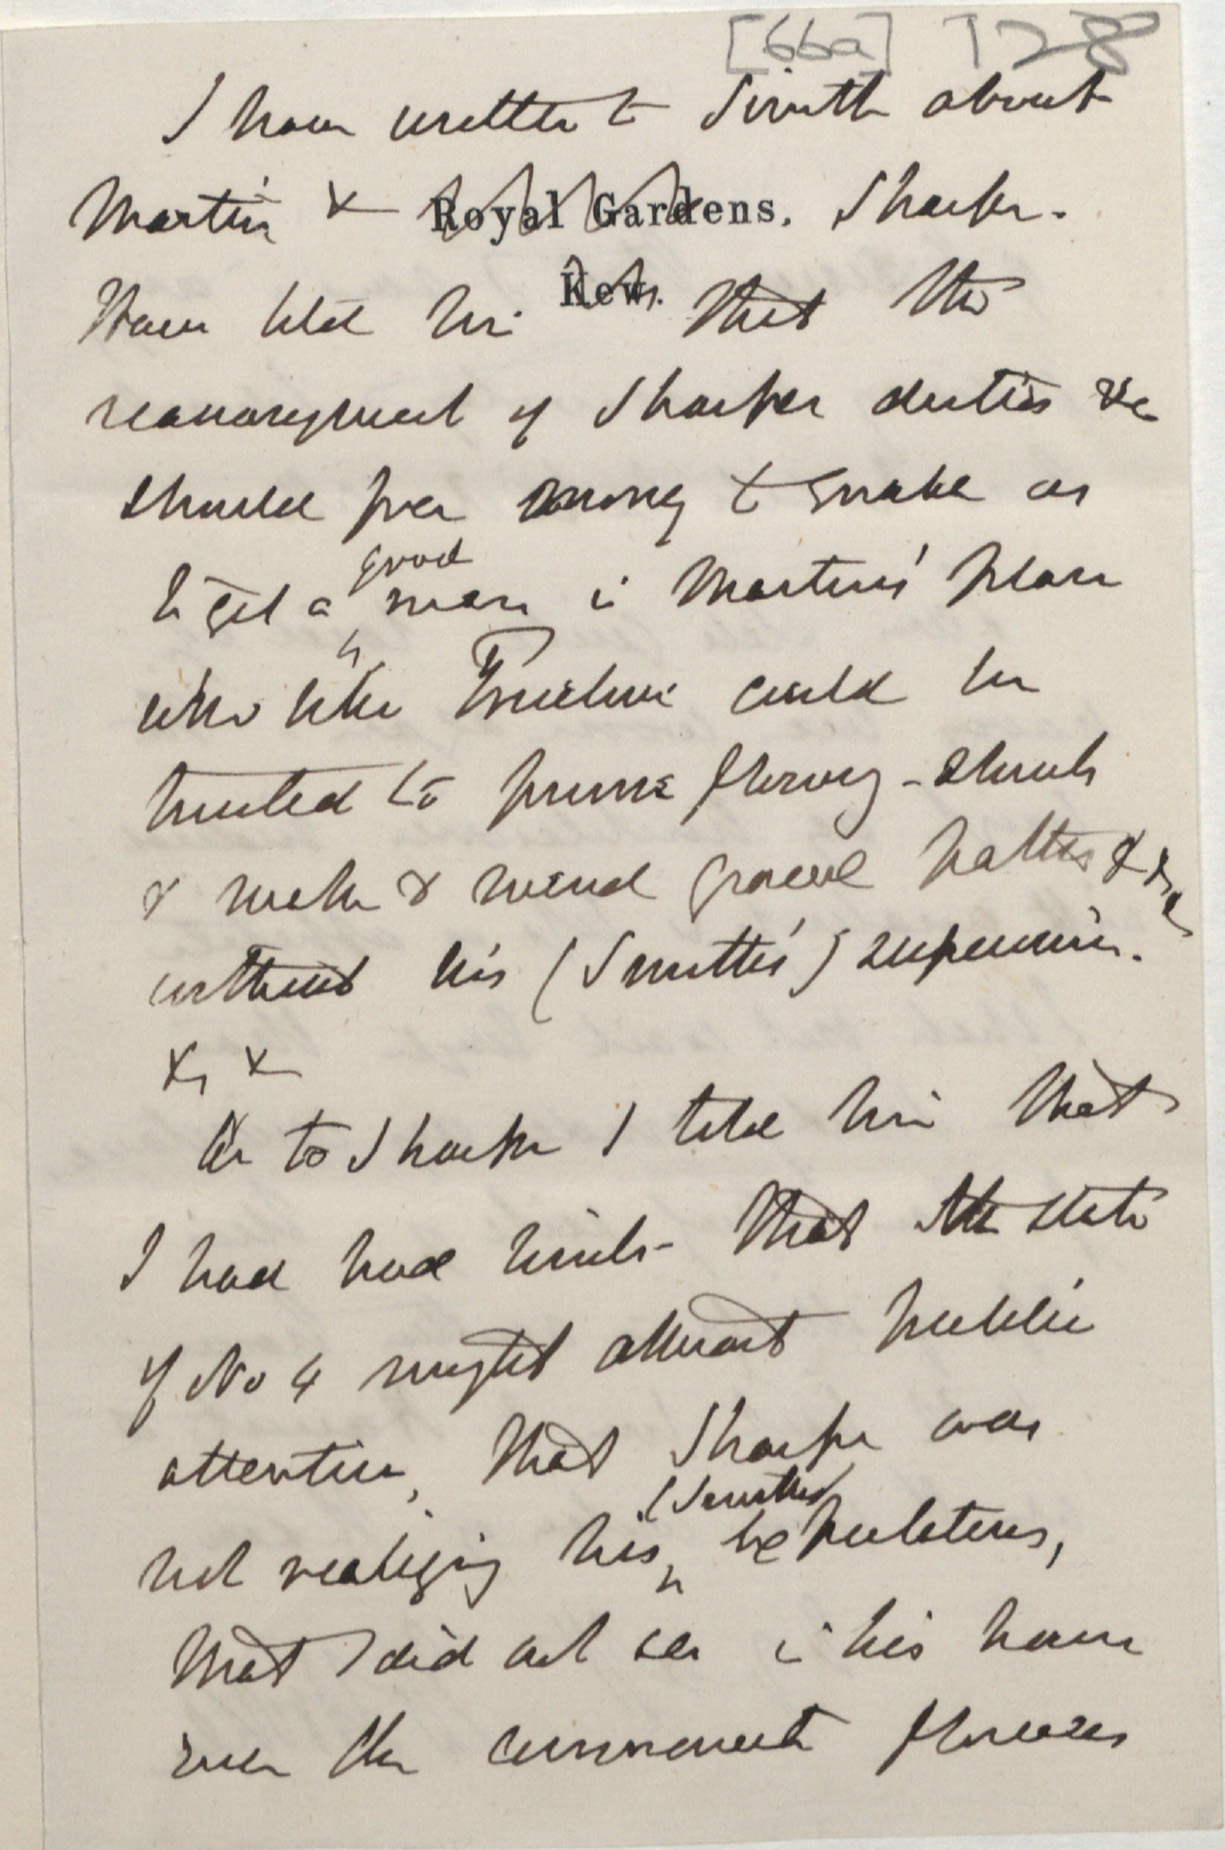 [66a] 128
I have written to Smith about
Martin & Royal Gardens, Sharpe.
Kew.
Have told him that the
rearrangement of Sharpes duties &c
should free money to enable us
to get a good man in Martins' place
who like could be
trusted to prune flowering-shrubs
& make & mend gravel paths & &c
without his (Smith's) supervision.
X X
As to Sharpe I told him that
I had had hints that the state
of No 4 might attract public
attention, that Sharpe was
not realizing his (Smiths) expectations,
that I did not see in his house
even the commonest flowers